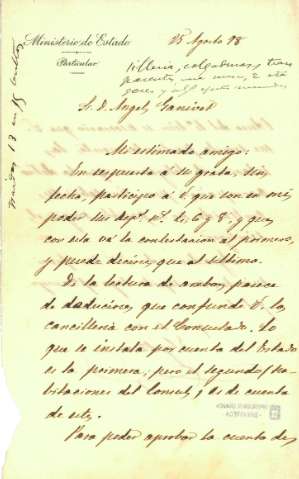 Ministerio de Estado
Particular
25 Agosto 98
sillería, colgaduras y tres
parientes una mesa, 2
S. D. Angel Ganivet
Mi estimado amigo:
En respuesta á su grata, sin
fecha, participo á V. que son en mi
poder sus desp.s n.s 2, 6 y 8, y que
con esta va la contestación al primero,
y puede decirse que al último.
De la lectura de ambos parece
deducirse que confunde V. la
cancillería con el Consulado. Lo
que se instala por cuenta del Estado
es la primera; pero el segundo (ha-
bitaciones del Consul) es de cuenta
de este.
Para poder aprobar la cuenta de